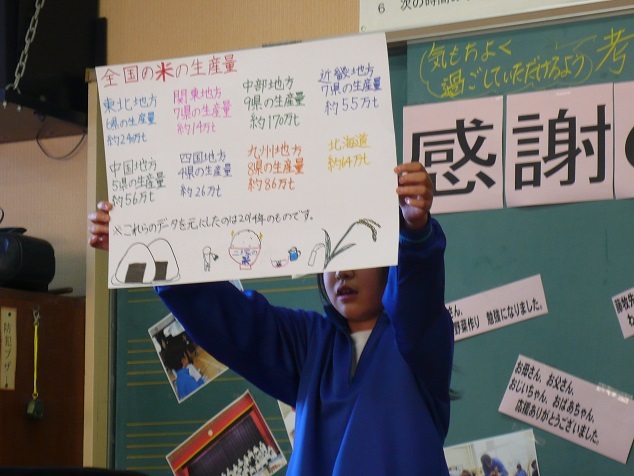 6 次の時間
(気もちよく
過ごしていただけるよう)考
全国の米の生産量
東北地方
6県の生産量
関東地方
7県の生産量
中部地方
9県の生産量
約170万t
近畿地方
7県の生産量
約55万t
中国地方
5県の生産量
約56万t
四国地方
4県の生産量
約26万t
九州地方
8県の生産量
約86万t
北海道
約64万t
※これらのデータを元にしたのは2014年のものです。
感謝の
野菜作り 勉強になりました。
お母さん、お父さん、
おじいちゃん、おばあちゃん、
応援ありがとうございました。
防犯ブザー